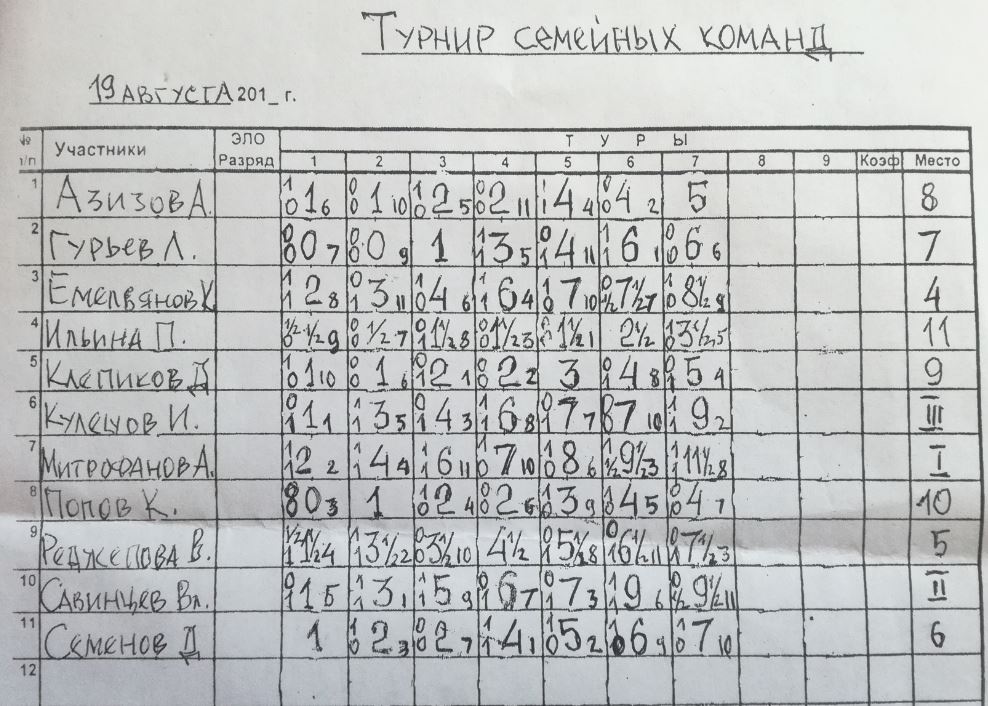 Турнир семейных команд
19 августа 201_ г.
№ п/п Участники ЭЛО Разряд ТУРЫ
1 2 3 4 5 6 7 8 9 Коэф Место
1 Азизова А. 1 0 1 6 0 0 1 10 1 0 2 5 0 0 2 11 1 1 4 4 0 0 4 2 5 8
2 Гурьев Л. 0 0 0 7 0 0 0 9 1 1 1 3 5 0 1 4 11 1 1 6 1 0 0 6 6 7
3 Емельянов К 1 1 2 8 0 1 3 11 0 1 4 6 1 1 6 4 0 1 7 10 0 ½ 7½ 7 1 0 8½ 9 4
4 Ильина П. ½ 0 ½ 9 0 0 ½ 7 0 1 1½ 8 0 0 1½ 3 0 0 1½ 1 2½ 0 1 3½ 5 11
5 Клепиков Д 1 0 1 10 0 0 1 6 0 1 2 1 0 0 2 2 3 0 1 4 8 1 0 5 4 9
6 Кулешов И. 0 1 1 1 1 1 3 5 1 0 4 3 1 1 6 8 0 1 7 7 0 0 7 10 1 1 9 2 III
7 Митрофанов А. 1 1 2 2 1 1 4 4 1 1 6 11 1 0 7 10 1 0 8 6 1 ½ 9½ 3 1 1 11½ 8 I
8 Попов К. 0 0 0 3 1 1 0 2 4 0 0 2 6 1 0 3 9 1 0 4 5 0 0 4 7 10
9 Реджепова В. ½ 1 1½ 4 1 1 3½ 2 0 0 3½ 10 4½ 0 1 5½ 8 0 1 6½ 11 0 1 7½ 3 5
10 Савинцев Вл. 0 1 1 5 1 1 3 1 1 1 5 9 0 1 6 7 1 0 7 3 1 1 9 6 0 ½ 9½ 11 II
11 Семенов Д 1 1 0 2 3 0 0 2 7 1 1 4 1 1 0 5 2 1 0 6 9 1 0 7 10 6
12